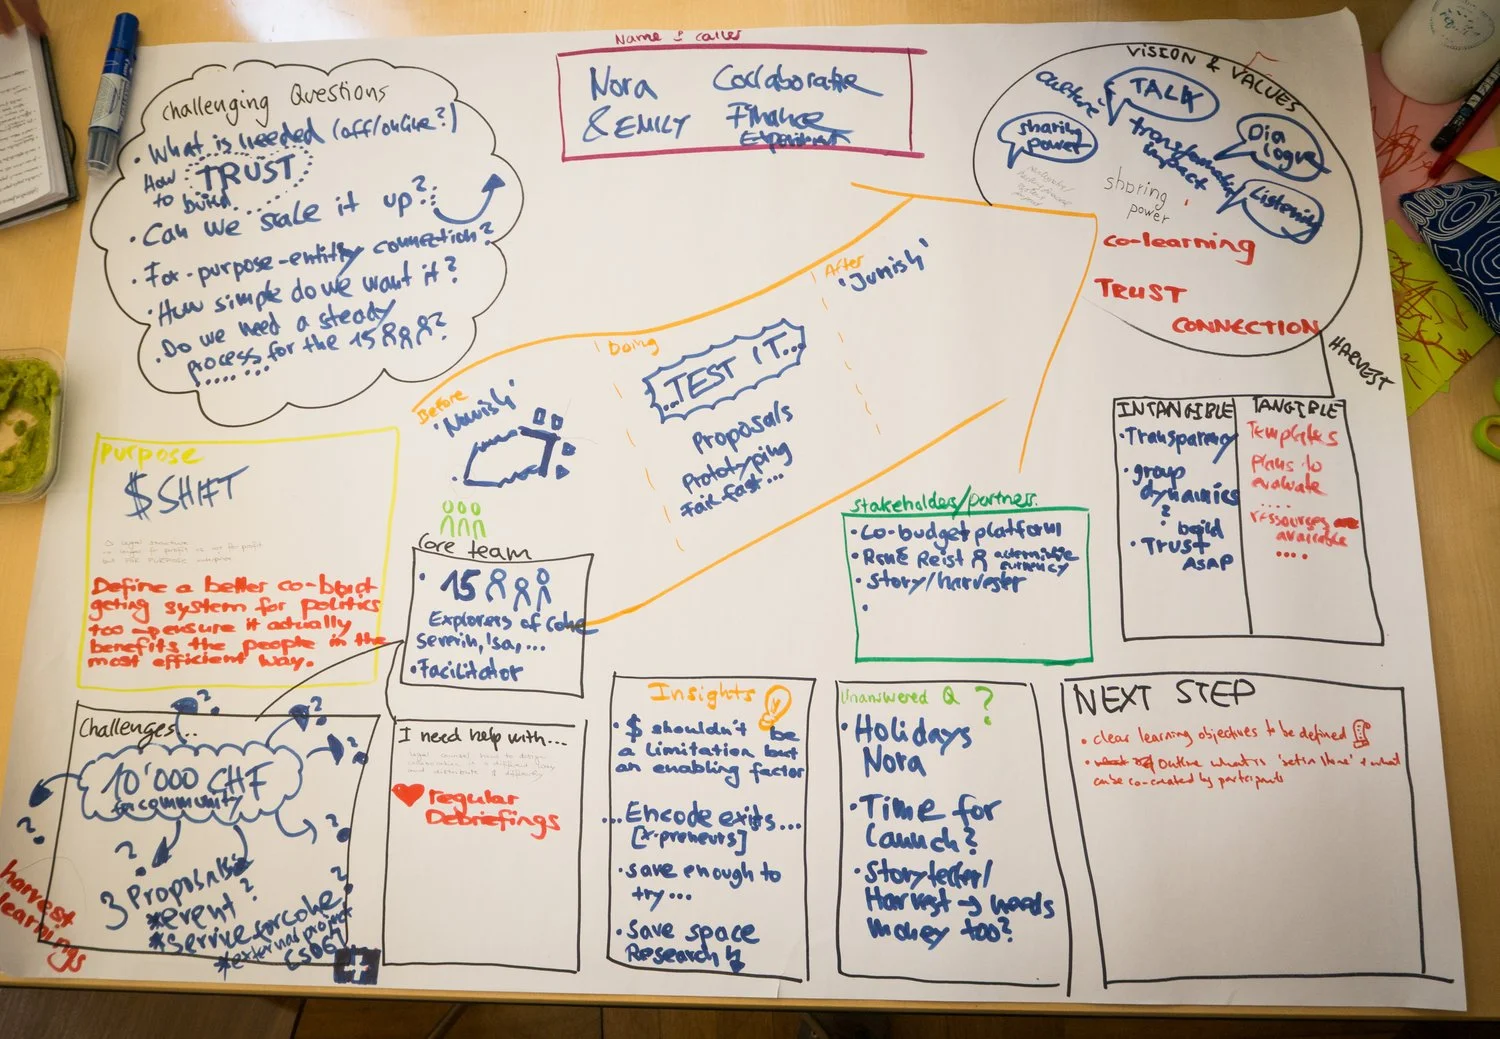 Name & caller
Nora Collaborative
& EMILY Finance
Experiment
Challenging Questions
• What is needed (off/online?)
How TRUST
to build
• Can we scale it up?
• For-purpose-entity connection?
• How simple do we want it?
• Do we need a steady
process for the 15
VISION & VALUES
culture
TALK
sharing
power
transformation
impact
Dia
logue
Listening
sharing
power
co-learning
TRUST
CONNECTION
HARVEST
INTANGIBLE
• Transparency
• group
dynamics
? build
• Trust
ASAP
TANGIBLE
Templates
Plans to
evaluate
....
ressources
available
....
Before
'Nowish'
Doing
...TEST IT...
Proposals
Prototyping
Fail-fast...
After
'Junish'
Purpose
$SHIFT
Define a better co-bud
geting system for politics
too → ensure it actually
benefits the people in the
most efficient way.
Core team
• 15
Explorers of Cohe
Severin, Isa, ...
• Facilitator
Stakeholders/partners
• Co-budget platform
• René Reist alternative
currency
• Story/harvester
•
Challenges...
10'000 CHF
for community
3 Proposals
*event?
*Service for cohe?
*external project
CSOG
harvest
learnings
I need help with...
regular
Debriefings
Insights
• $ shouldn't be
a limitation but
an enabling factor
...Encode exits...
[x-preneurs]
• save enough to
try...
• Save space
Research
Unanswered Q ?
• Holidays
Nora
• Time for
launch?
• Storyteller/
Harvest → needs
money too?
NEXT STEP
• clear learning objectives to be defined
• Outline what is 'set in stone' & what
can be co-created by participants